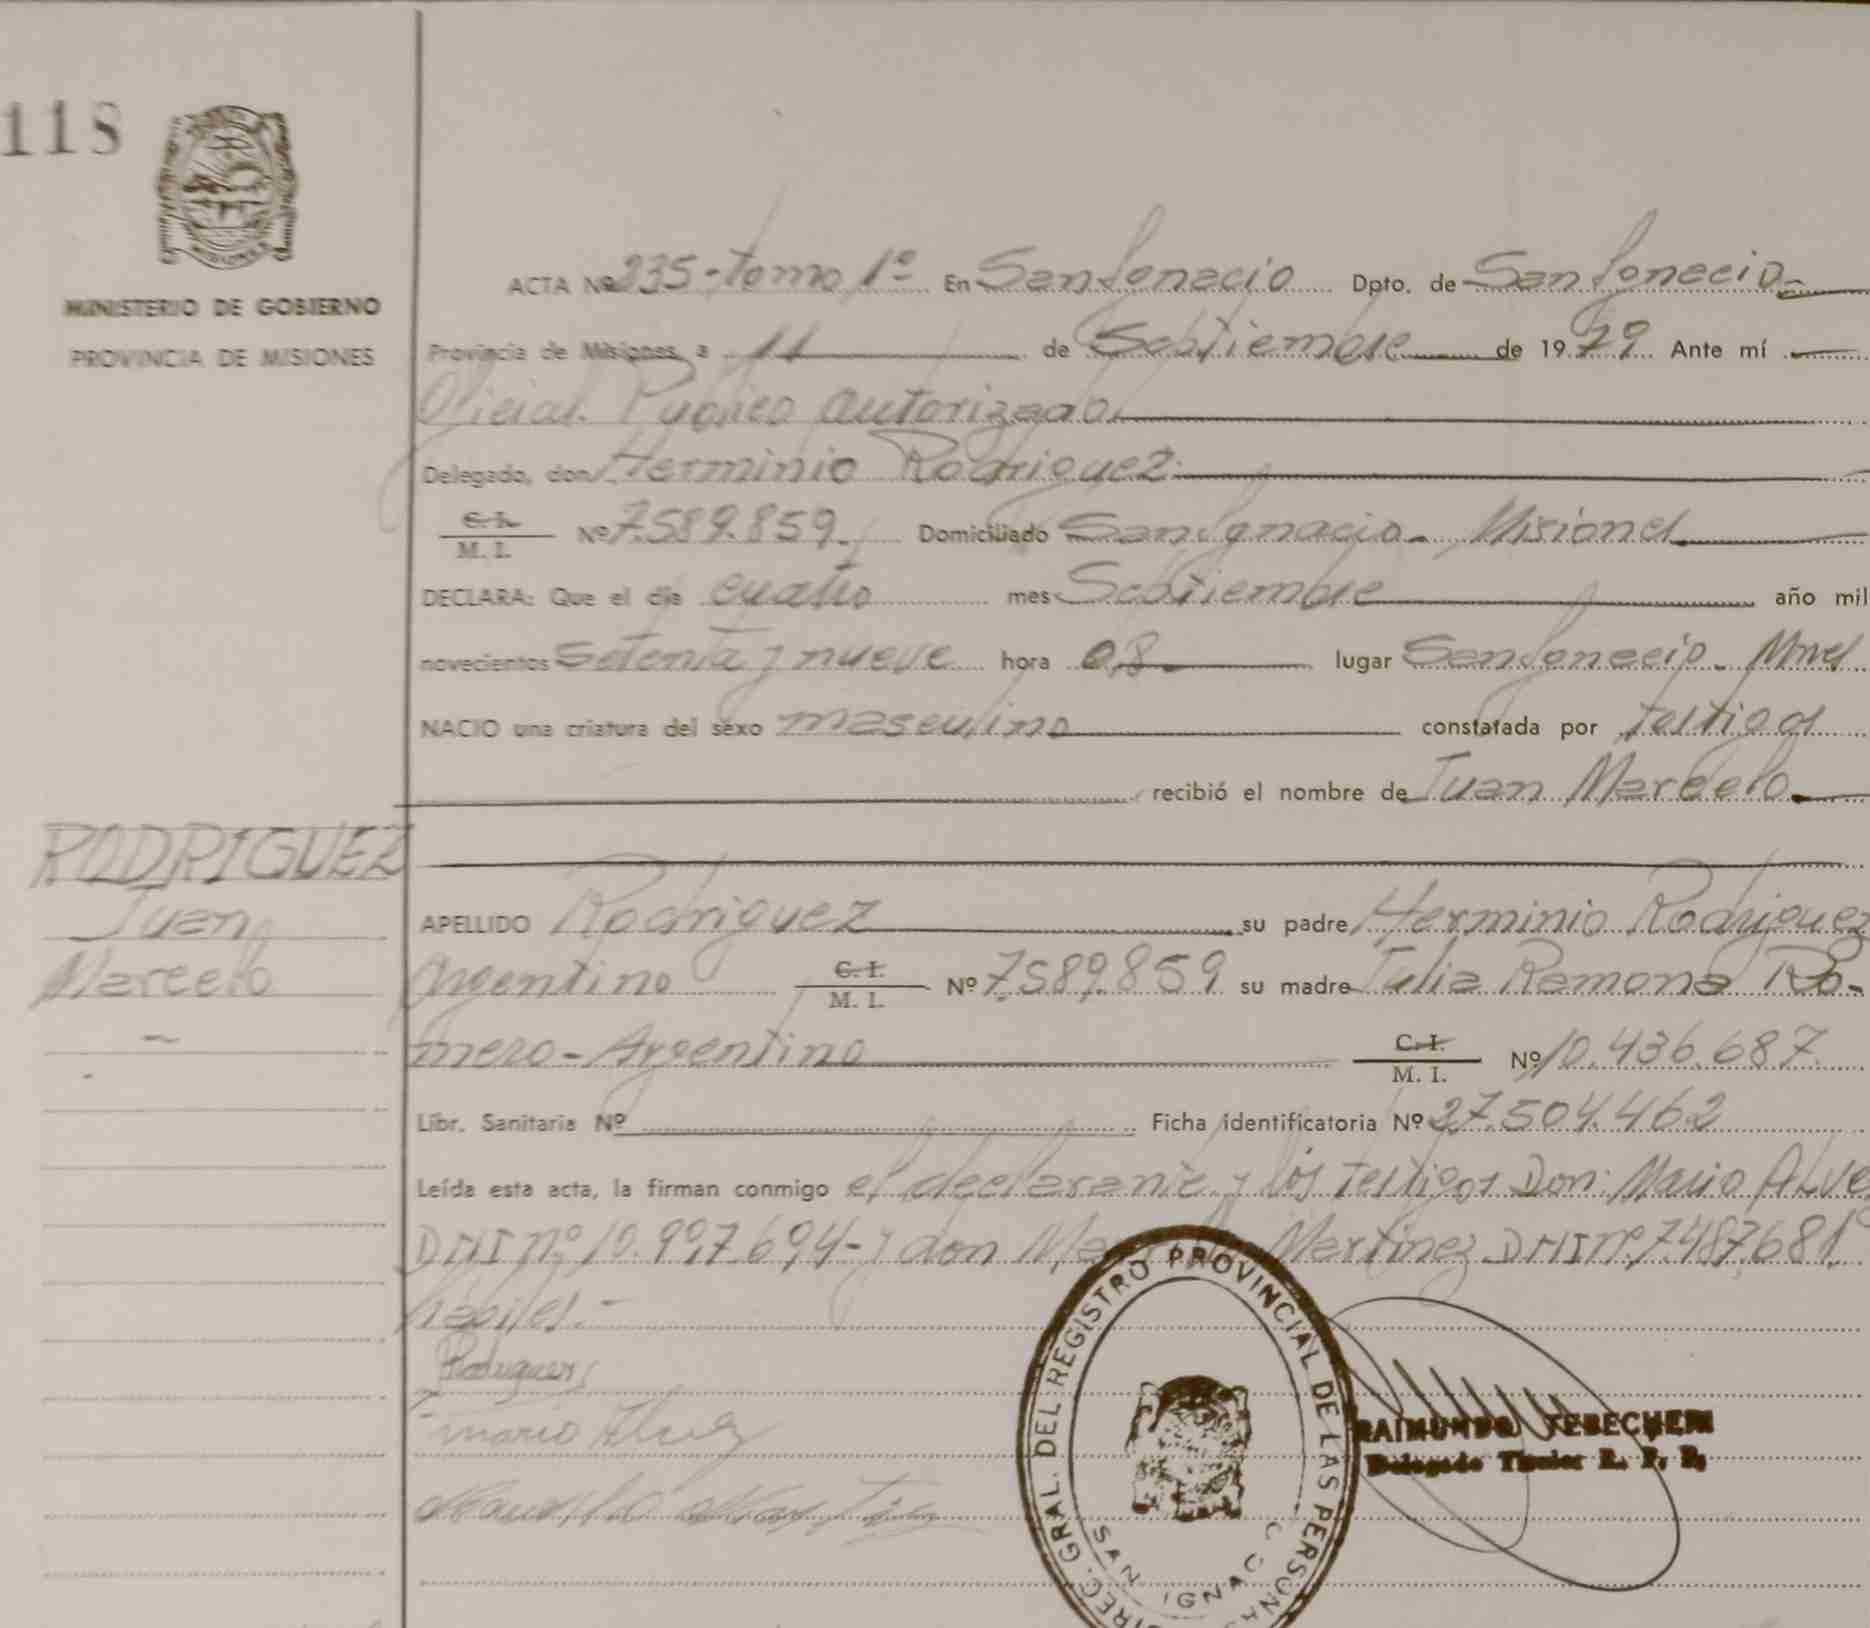 118
MINISTERIO DE GOBIERNO
PROVINCIA DE MISIONES
ACTA Nº 235-tomo 1º En San Ignacio Dpto. de San Ignacio
Provincia de Misiones, a 11 de Septiembre de 1979 Ante mí
Oficial Publico Autorizado
Delegado, don Herminio Rodriguez
C.I. / M. I. Nº 7.589.859 Domiciliado San Ignacio - Misiones
DECLARA: Que el día cuatro mes Septiembre año mil
novecientos setenta y nueve hora 08 lugar San Ignacio - Mnes
NACIO una criatura del sexo masculino constatada por testigos
recibió el nombre de Juan Marcelo
RODRIGUEZ
Juan
Marcelo
APELLIDO Rodriguez su padre Herminio Rodriguez
Argentino C.I. / M. I. Nº 7.589.859 su madre Julia Ramona Ro-
mero - Argentino C.I. / M. I. Nº 10.436.687
Libr. Sanitaria Nº Ficha identificatoria Nº 27.504.462
Leída esta acta, la firman conmigo el declarante y los testigos Don: Mario Alve
DNI nº 10.997.694 - y don Martinez DNI nº 7.487.681
hábiles.-
Rodriguez
Mario Alvez
DIREC. GRAL. DEL REGISTRO PROVINCIAL DE LAS PERSONAS
SAN IGNACIO
RAIMUNDO TEBECHERI
Delegado Titular R. P. P.